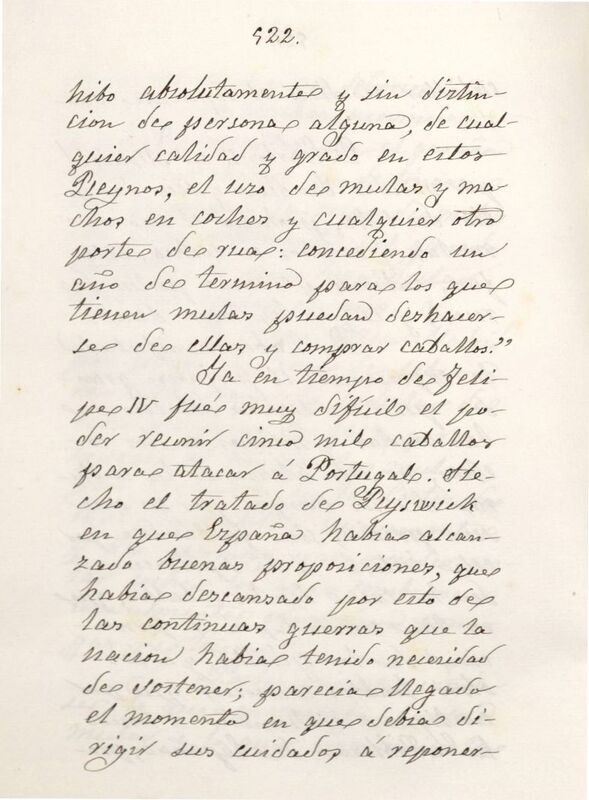 922.
hibo absolutamente y sin distin-
cion de persona alguna, de cual-
quier calidad y grado en estos
Reynos, el uzo de mulas y ma-
chos en coches y cualquier otro
porte de rua: concediendo un
año de termino para los que
tienen mulas puedan deshacer-
se de ellas y comprar caballos."
Ya en tiempo de Feli-
pe IV fué muy difícil el po-
der reunir cinco mil caballos
para atacar á Portugal. He-
cho el tratado de Ryswick
en que España habia alcan-
zado buenas proposiciones, que
habia descansado por esto de
las continuas guerras que la
nacion habia tenido necesidad
de sostener; parecia llegado
el momento en que debia di-
rigir sus cuidados á reponer-